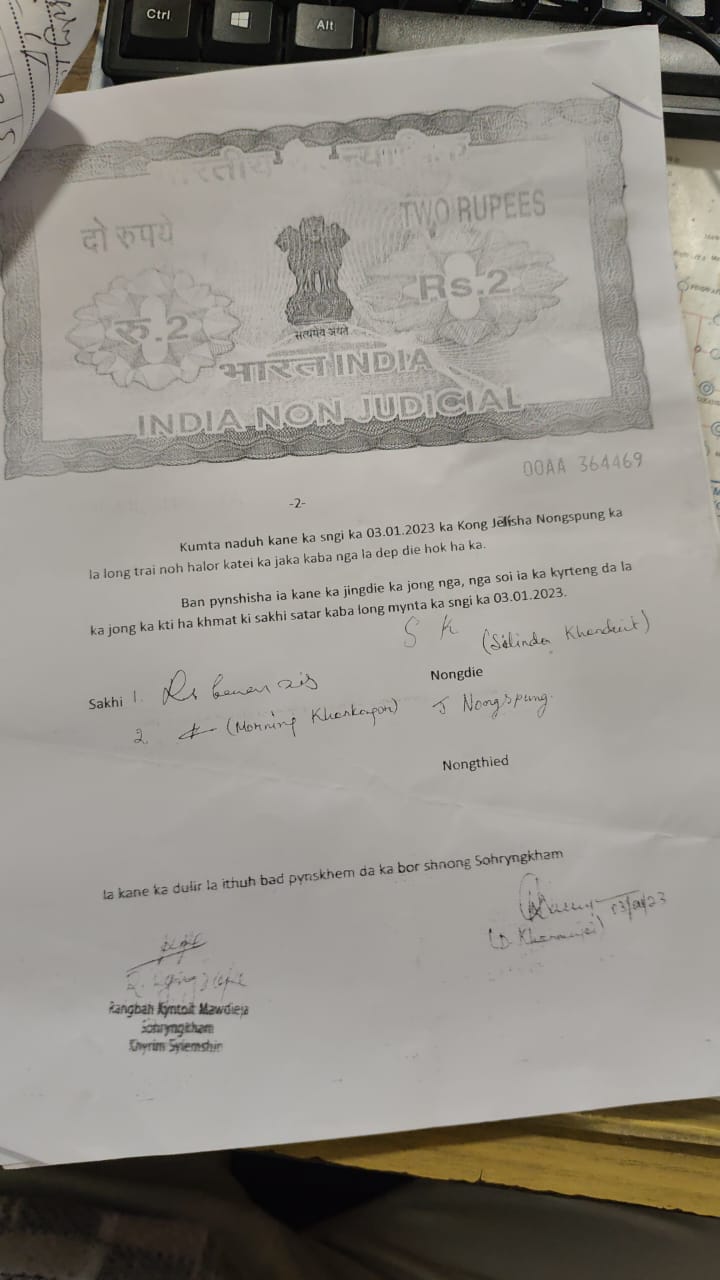 Ctrl
Alt
दो रुपये
TWO RUPEES
रु.2
Rs.2
सत्यमेव जयते
भारत INDIA
INDIA NON JUDICIAL
00AA 364469
-2-
Kumta naduh kane ka sngi ka 03.01.2023 ka Kong Jelisha Nongspung ka
la long trai noh halor katei ka jaka kaba nga la dep die hok ha ka.
Ban pynshisha ia kane ka jingdie ka jong nga, nga soi ia ka kyrteng da la
ka jong ka kti ha khmat ki sakhi satar kaba long mynta ka sngi ka 03.01.2023.
S K (Solinda
Nongdie
Sakhi 1.
2. (Morning
J Nongspung.
Nongthied
Ia kane ka dulir la ithuh bad pynskhem da ka bor shnong Sohryngkham
03/01/23
Rangbah Kyntoit Mawdieja
Sohryngkham
Khyrim Syiemship